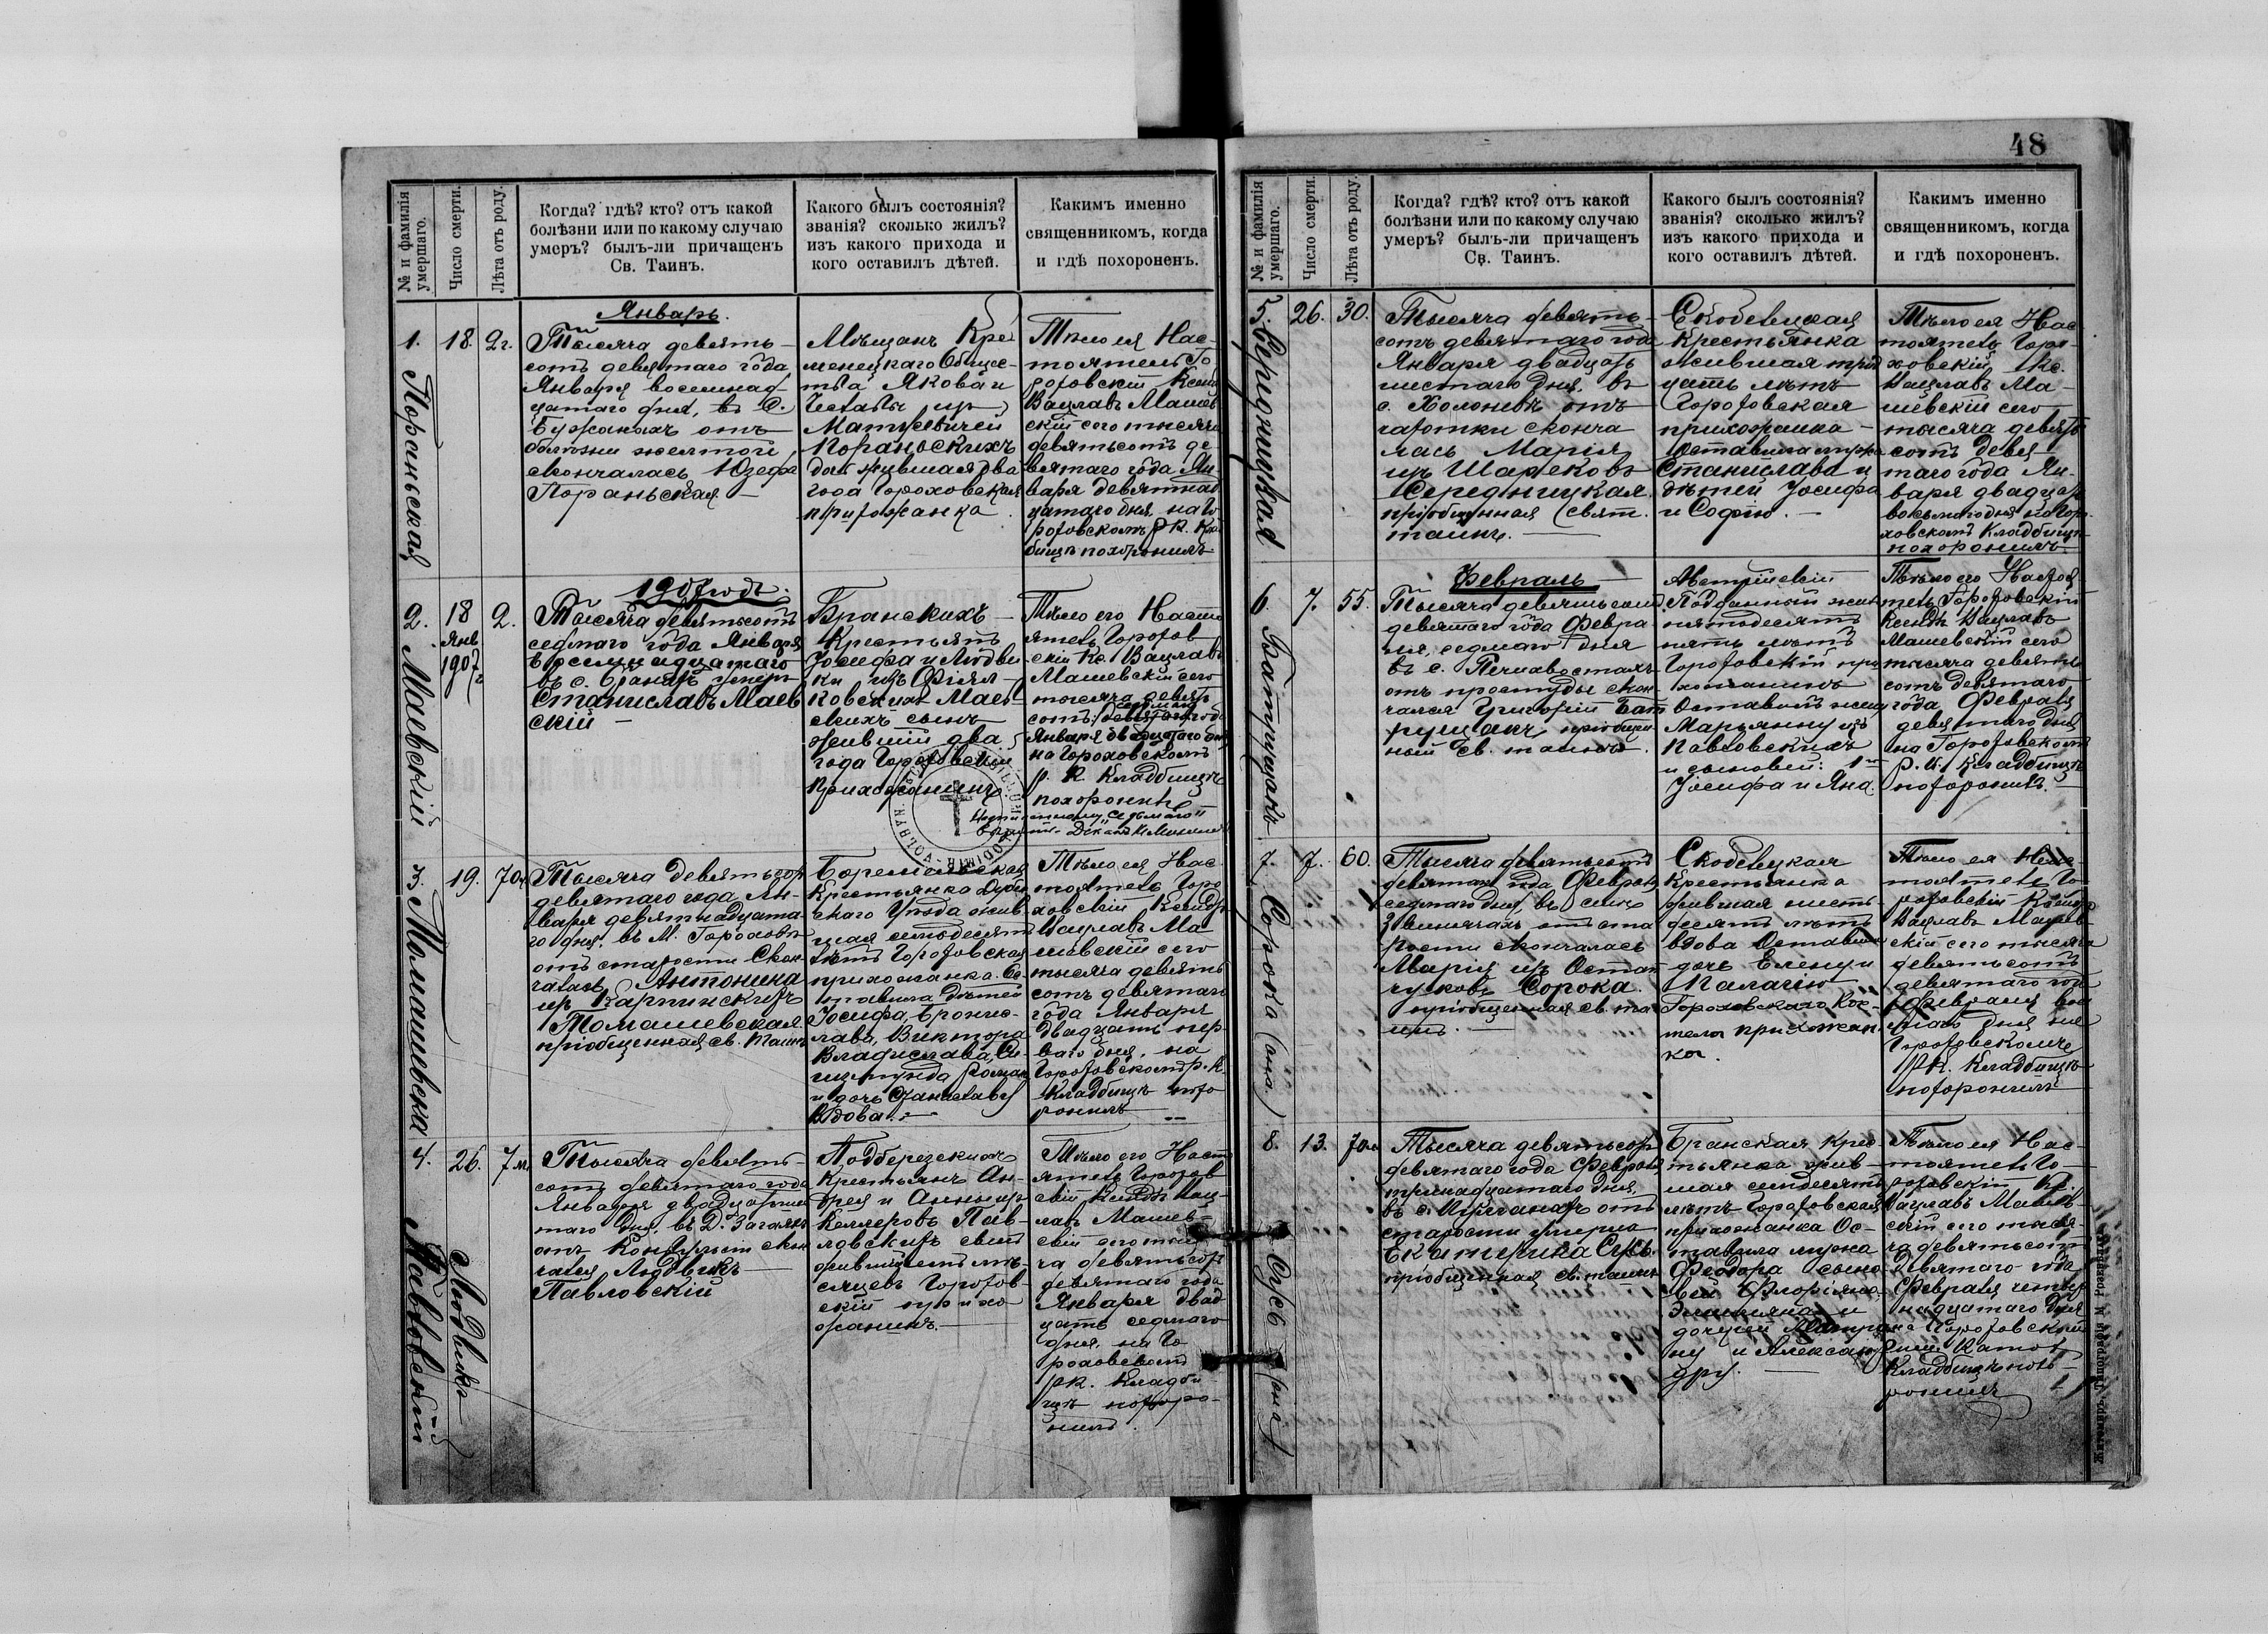 48
№ и фамилія умершаго.
Число смерти.
Лѣта отъ роду.
Когда? гдѣ? кто? отъ какой
болѣзни или по какому случаю
умеръ? былъ-ли причащенъ
Св. Таинъ.
Какого былъ состоянія?
званія? сколько жилъ?
изъ какого прихода и
кого оставилъ дѣтей.
Какимъ именно
священникомъ, когда
и гдѣ похороненъ.
1.
Пораньская
18.
2 г.
Январь.
Тысяча девять-
сотъ девятаго года
Января восемнад-
цатаго дня, въ С.
Бужанахъ отъ
болѣзни
скончалась Юзефа
Пораньская
Мѣщанъ Кре
менецкаго Общес-
тва Якова и
изъ
Матусевичей
Пораньскихъ
дочь жившая два
года Гороховская
прихожанка
Тѣло ея Нас-
тоятель Го
роховскій Ксендзъ
Вацлавъ Машев
скій сего тысяча
девятьсотъ де-
вятаго года Ян-
варя девятнад
цатаго дня на Го
роховскомъ Р. К. Клад
бищѣ похоронилъ
2.
Маевскій
18
Янв
1907 г.
2.
1907 годъ.
Тысяча девятьсотъ
седмаго года Января
восемнадцатаго
въ с. Бранахъ умеръ
Станиславъ Маев
скій
Бранскихъ
Крестьянъ
Іосифа и Людви
ки изъ Филял-
ковскихъ Маев-
скихъ сынъ
жившій два
года Гороховскій
прихожанинъ
Тѣло его Насто
ятель Горохов
скій Кс. Вацлавъ
Машевскій сего
тысяча девять
сотъ седмаго года
Января двадцатаго дня
на Гороховскомъ
р. К. Кладбищѣ
похоронилъ
"седьмаго"
3.
Томашевска
19.
70 л.
Тысяча девятьсотъ
девятаго года Ян-
варя девятнадцата-
го дня, въ М. Гороховѣ
отъ старости Скон-
чалась Антонина
изъ Карпинскихъ
Томашевская
пріобщенная св. Таинъ
Боремельская
Крестьянка Дубен
скаго Уѣзда жив-
шая семьдесятъ
лѣтъ Гороховская
прихожанка. Ос-
тавила дѣтей
Іосифа, Бронис-
лава, Виктора
Владислава, Си-
гизмунда Роман
и дочь Станиславу
Вдова.
Тѣло ея Нас-
тоятель Горо
ховскій Ксендзъ
Вацлавъ Ма
шевскій сего
тысяча девять
сотъ девятаго
года Января
двадцать пер-
ваго дня, на
Гороховскомъ р. К.
Кладбищѣ похо
ронилъ
4.
Людвикъ
Павловскій
26.
7 м.
Тысяча девять-
сотъ девятаго года
Января двадцать шес
таго дня, въ Д. Загаяхъ
отъ Конвульсіи скон
чался Людвикъ
Павловскій
Подберезскихъ
Крестьянъ Ан-
дрея и Анны изъ
Келлеровъ Пав-
ловскихъ сынъ
жившій семь мѣ-
сяцевъ Горохов-
скій прихо
жанинъ.
Тѣло его Насто
ятель Горохов
скій Ксендзъ Вац-
лавъ Машев-
скій сего тыся
ча девятьсотъ
девятаго года
Января двад-
цать седмаго
дня, на Го-
роховскомъ
р.к. Кладби
щѣ похоро-
нилъ.
№ и фамилія умершаго.
Число смерти.
Лѣта отъ роду.
Когда? гдѣ? кто? отъ какой
болѣзни или по какому случаю
умеръ? былъ-ли причащенъ
Св. Таинъ.
Какого былъ состоянія?
званія? сколько жилъ?
изъ какого прихода и
кого оставилъ дѣтей.
Какимъ именно
священникомъ, когда
и гдѣ похороненъ.
5.
Середницкая
26.
30.
Тысяча девять-
сотъ девятаго года
Января двадцать
шестаго дня, въ
с. Холоневѣ отъ
чахотки сконча
лась Марія
изъ Шареховъ
Середницкая.
пріобщенная свят.
таинъ.
Скобелецкая
Крестьянка
жившая трид
цать лѣтъ
Гороховская
прихожанка
Оставила мужа
Станислава и
дѣтей Іосифа
и Софію.
Тѣло ея Нас
тоятель Горо-
ховскій Кс.
Вацлавъ Ма-
шевскій сего
тысяча девять
сотъ девя
таго года Ян-
варя двадцать
восьмаго дня на Горо
ховскомъ Кладбищѣ
похоронилъ
6
Батрущакъ
7.
55.
Февраль
Тысяча девятьсотъ
девятаго года Февра
ля, седмаго дня
въ с. Печихвостахъ
отъ простуды скон-
чался Григорій Бат
рущакъ пріобщен-
ный св. таинъ.
Австрійскій
Подданный жив
пятьдесятъ
пять лѣтъ
Гороховскій при
хожанинъ
Оставилъ жену
Марьянну изъ
Павловскихъ
и сыновей:
Іосифа и Яна.
Тѣло его Настоя-
тель Гороховскій
Ксендзъ Вацлавъ
Машевскій сего
тысяча девять
сотъ девятаго
года Февраля
девятаго дня
на Гороховскомъ
р. К. Кладбищѣ
похоронилъ.
7.
Сорока (она)
7.
60.
Тысяча девятьсотъ
девятаго года Февраля
седмаго дня, въ селѣ
Звинячахъ отъ ста
рости скончалась
Марія изъ Остап
чуковъ Сорока.
пріобщенная св. та
инъ.
Скобелецкая
Крестьянка
жившая шесть-
десятъ лѣтъ
вдова Оставила
дочь Елену и
Палагію
Гороховскаго Кос-
тела прихожан
ка.
Тѣло ея Нас-
тоятель Го-
роховскій Ксендзъ
Вацлавъ Машев
скій сего тысяча
девятьсотъ
девятаго года
Февраля
дня на
Гороховскомъ
р.К. Кладбищѣ
похоронилъ
8.
Сусь (она)
13.
70 л.
Тысяча девятьсотъ
девятаго года Февраля
тринадцатаго дня,
въ с. отъ
старости умерла
Екатерина Сусь.
пріобщенная св. таинъ
Бранская Крес-
тьянка жив-
шая семдесятъ
лѣтъ Гороховская
прихожанка Ос-
тавила мужа
Феодора сыно
вей Флоріана,
и
дочерей Матре
ну и Алексан
дру.
Тѣло ея Нас-
тоятель Го-
роховскій Кс.
Вацлавъ Машев
скій сего тыся
ча девятьсотъ
девятаго года
Февраля четыр
надцатаго дня
на Гороховскомъ
Рим. Катол.
Кладбищѣ похо-
ронилъ
Житомиръ, Типографія М.